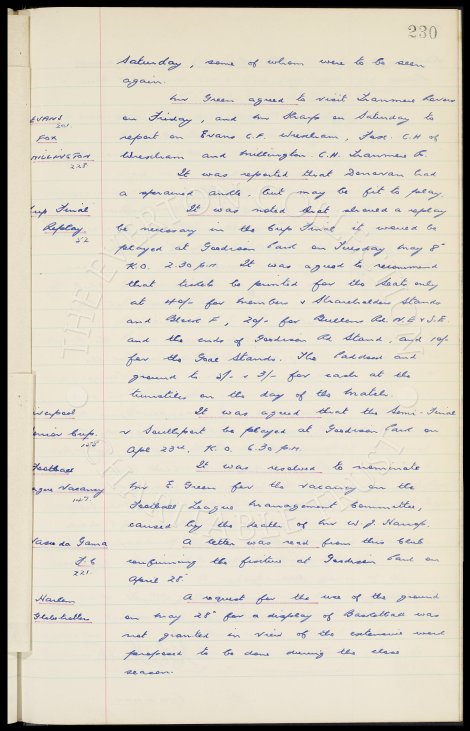 230
Saturday, some of whom were to be seen
again.
Mr Green agreed to visit Tranmere Rovers
EVANS
201
on Friday, and Mr Sharp on Saturday to
FOX
report on Evans C.F. Wrexham, Fox. C.H of
MILLINGTON
228
Wrexham and Millington. C.H. Tranmere R.
It was reported that Donovan had
a sprained ankle, but may be fit to play.
Cup Final
It was noted that should a replay
Replay.
52
be necessary in the Cup Final it would be
played at Goodison Park on Tuesday May 8"
K.O. 2.30 p.m. It was agreed to recommend
that tickets be printed for the seats only
at 40/- for members & Shareholders Stands
and Block F, 20/- for Bullens Rd. N.E & S.E.
and the ends of Goodison Rd Stand, and 10/-
for the Goal Stands. The Paddock and
ground to 5/- & 3/- for cash at the
turnstiles on the day of the match.
Liverpool
It was agreed that the Semi-Final
Senior Cup.
v Southport be played at Goodison Park on
April 23rd, K.O. 6.30 p.m.
Football
It was resolved to nominate
League Vacancy
147.
Mr E Green for the vacancy on the
Football League Management Committee,
caused by the death of Mr W. J. Harrop.
Vasco da Gama
A letter was read from this Club
F.C
221.
confirming the fixture at Goodison Park on
April 28"
Harlem
A request for the use of the ground
Globetrotters
on May 28" for a display of Basketball was
not granted in view of the extensive work
proposed to be done during the close
season.